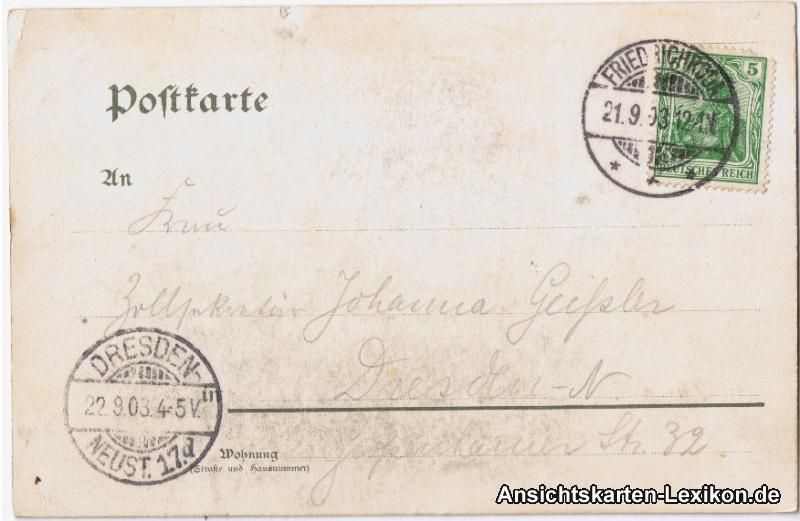 Postkarte
FRIEDRICHRODA
21.9.03.12-1N.
5
DEUTSCHES REICH
An
Frau
Zollsekretär Johanna Geißler
DRESDEN-
22.9.03.4-5V.
NEUST. 17.d
in
Dresden-N
Wohnung
(Straße und Hausnummer)
Str. 32.
Ansichtskarten-Lexikon.de